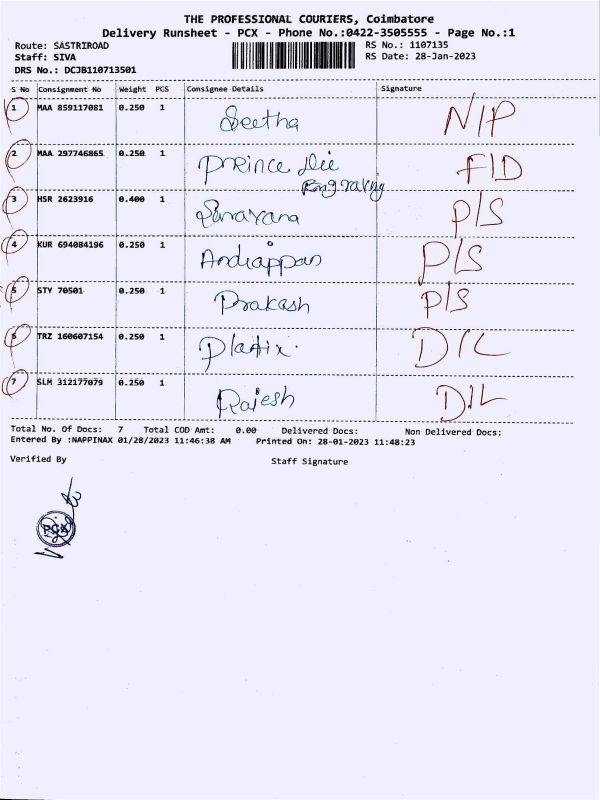 THE PROFESSIONAL COURIERS, Coimbatore
Delivery Runsheet - PCX - Phone No.:0422-3505555 - Page No.:1
Route: SASTRIROAD RS No.: 1107135
Staff: SIVA RS Date: 28-Jan-2023
DRS No.: DCJB110713501
S No Consignment No Weight PCS Consignee Details Signature
1 MAA 859117081 0.250 1 Seetha N/P
2 MAA 297746865 0.250 1 Prince Die F/D
Engraving
3 HSR 2623916 0.400 1 P/S
4 KUR 694084196 0.250 1 Andiappan P/S
5 STY 70501 0.250 1 Prakash P/S
6 TRZ 160607154 0.250 1 D/L
7 SLM 312177079 0.250 1 Rajesh D/L
Total No. Of Docs: 7 Total COD Amt: 0.00 Delivered Docs: Non Delivered Docs:
Entered By :NAPPINAX 01/28/2023 11:46:38 AM Printed On: 28-01-2023 11:48:23
Verified By Staff Signature
PCX